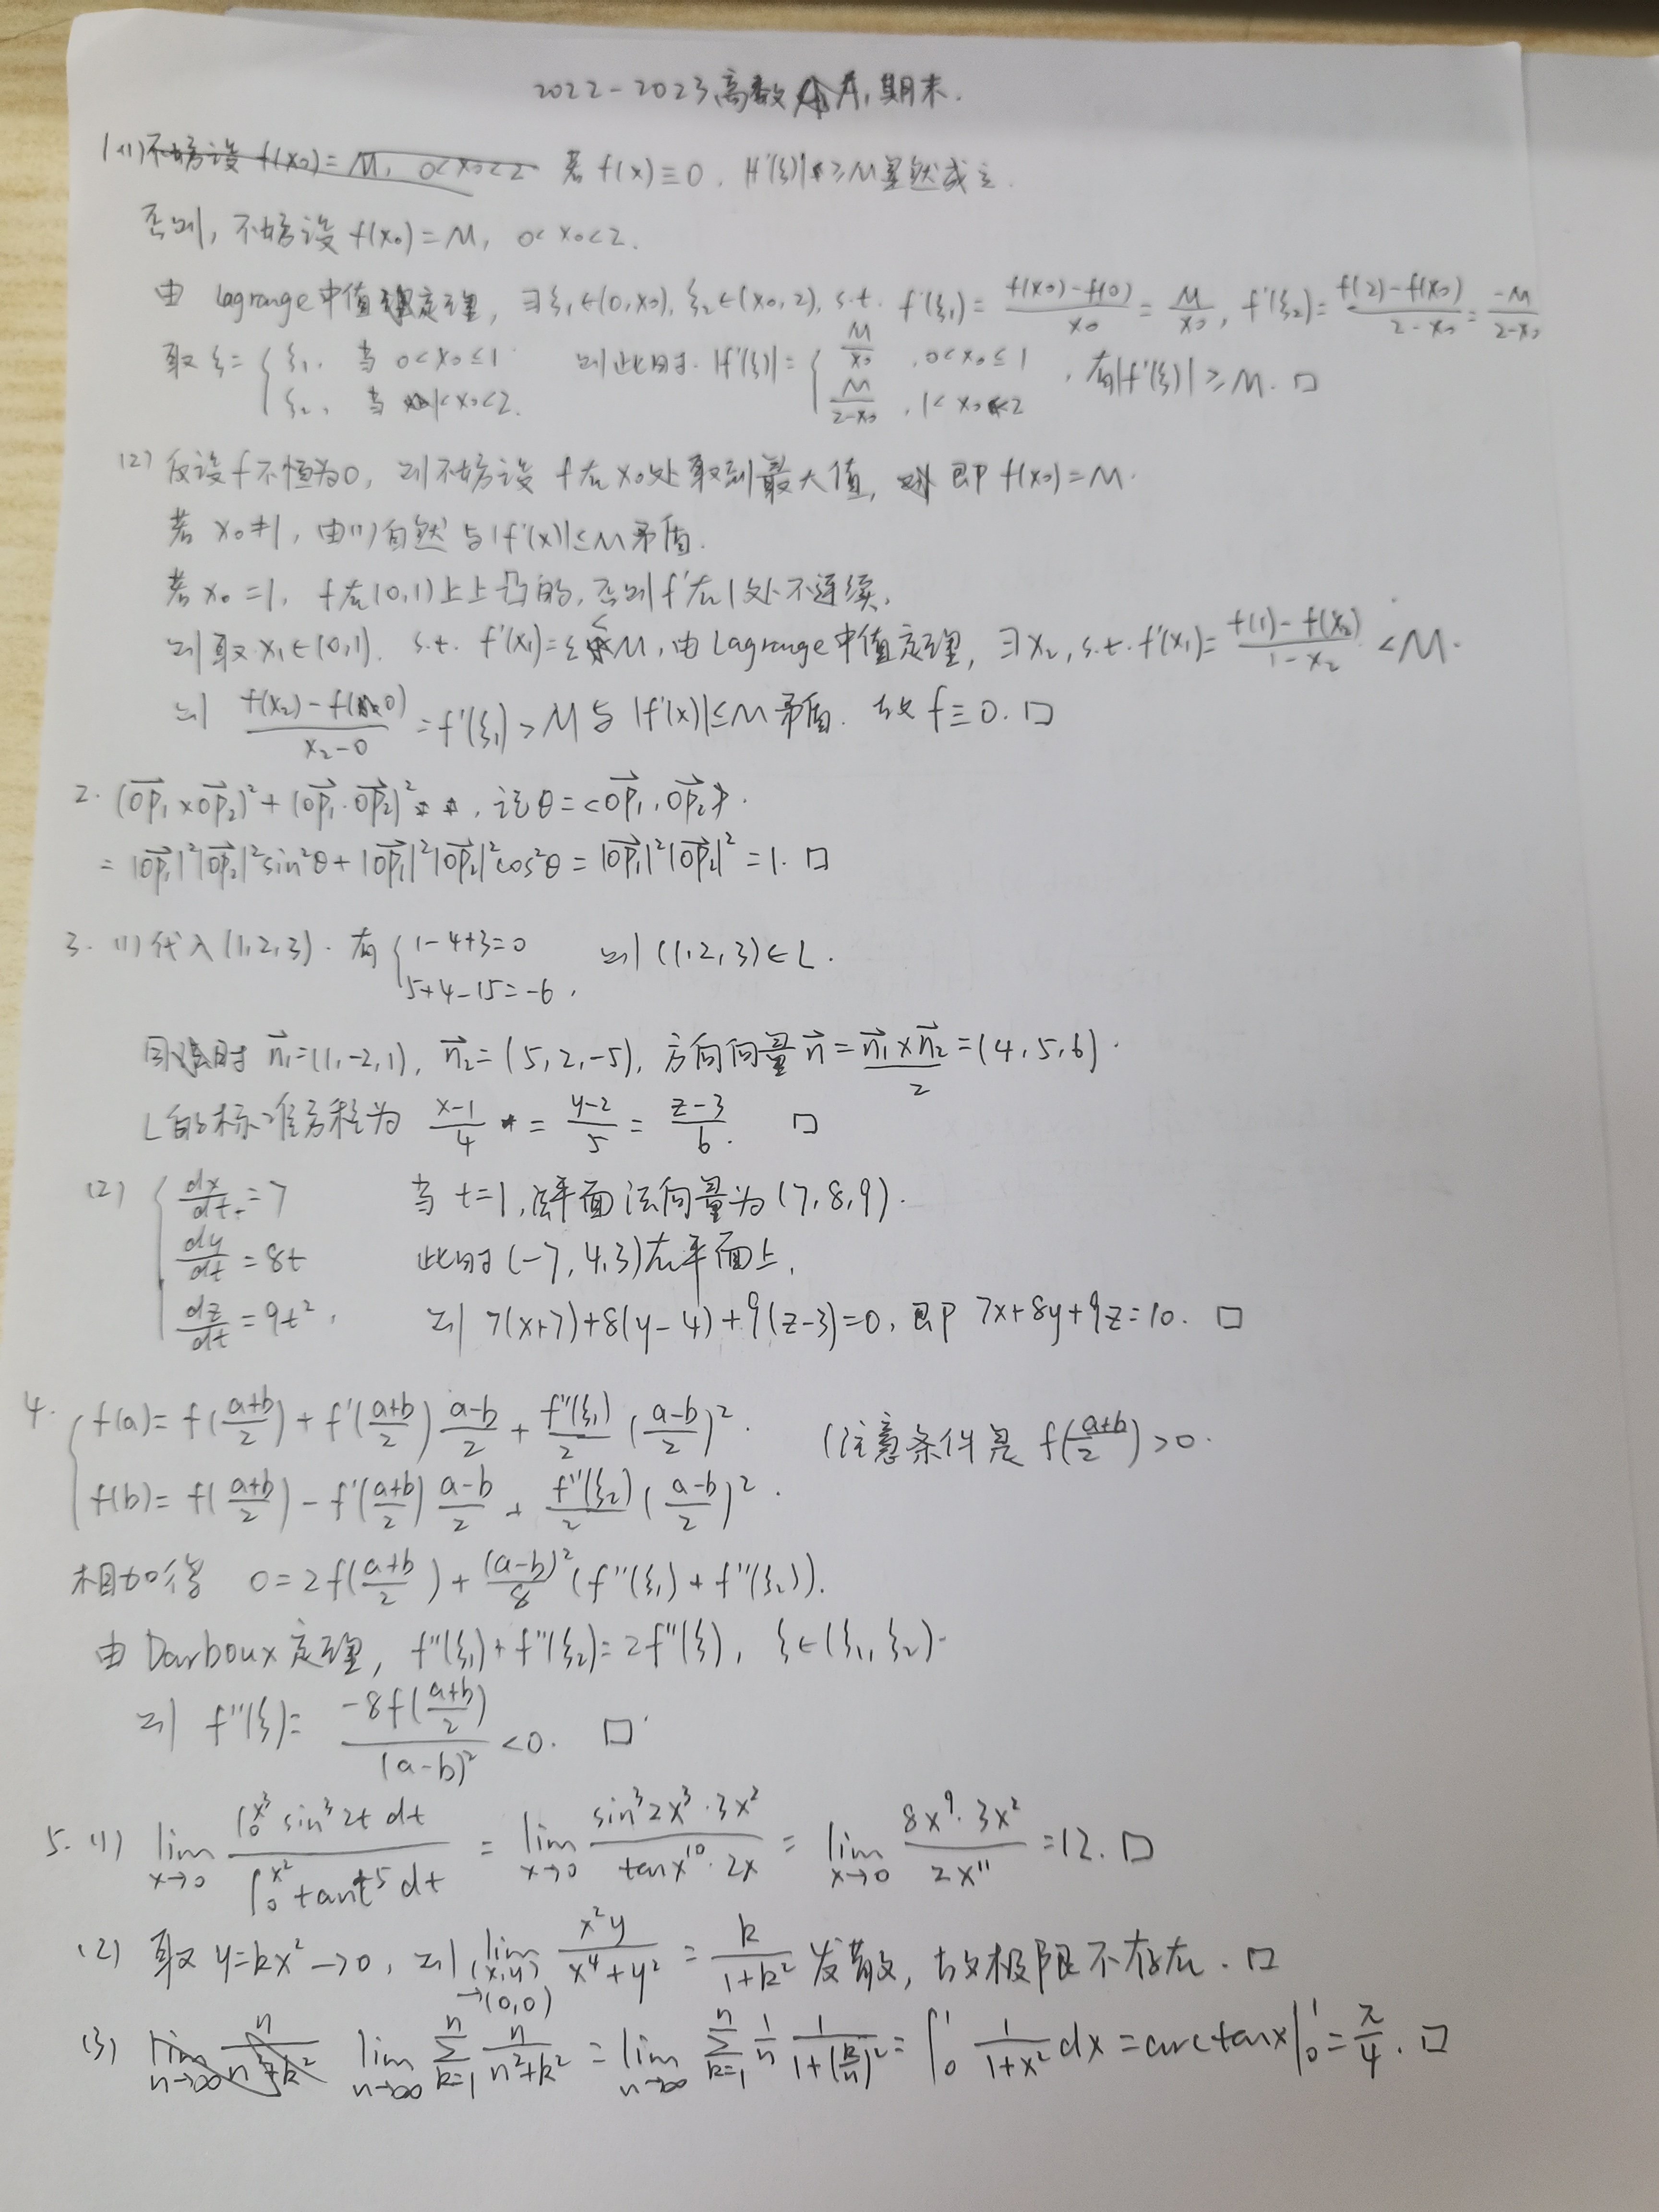 2022-2023高数A₁期末.
1(1) 不妨设 f(x₀)=M, 0<x₀<2 若 f(x)≡0, |f'(ξ)|≥M显然成立.
否则, 不妨设 f(x₀)=M, 0<x₀<2.
由 Lagrange中值定理, ∃ξ₁∈(0,x₀), ξ₂∈(x₀,2), s.t. f'(ξ₁)=(f(x₀)-f(0))/x₀=M/x₀, f'(ξ₂)=(f(2)-f(x₀))/(2-x₀)=-M/(2-x₀)
取ξ={ξ₁, 当 0<x₀≤1 则此时 |f'(ξ)|={M/x₀, 0<x₀≤1, 有|f'(ξ)|≥M. □
ξ₂, 当 1<x₀<2. M/(2-x₀), 1<x₀<2
(2) 反设f不恒为0, 则不妨设 f在x₀处取到最大值, 即 f(x₀)=M.
若 x₀≠1, 由(1)自然与|f'(x)|≤M矛盾.
若 x₀=1, f在(0,1)上上凸的, 否则f'在1处不连续,
则取x₁∈(0,1), s.t. f'(x₁)=ε<M, 由Lagrange中值定理, ∃x₂, s.t. f'(x₁)=(f(1)-f(x₂))/(1-x₂)<M.
则 (f(x₂)-f(0))/(x₂-0)=f'(ξ₁)>M 与 |f'(x)|≤M 矛盾. 故 f≡0. □
2. (OP₁→×OP₂→)²+(OP₁→·OP₂→)², 记θ=<OP₁→,OP₂→>.
=|OP₁→|²|OP₂→|²sin²θ+|OP₁→|²|OP₂→|²cos²θ=|OP₁→|²|OP₂→|²=1. □
3. (1) 代入(1,2,3). 有{1-4+3=0 则 (1,2,3)∈L.
5+4-15=-6,
同时 n₁→=(1,-2,1), n₂→=(5,2,-5), 方向向量n→=(n₁→×n₂→)/2=(4,5,6).
L的标准方程为 (x-1)/4=(y-2)/5=(z-3)/6. □
(2) {dx/dt=7 当 t=1, 法平面法向量为(7,8,9).
dy/dt=8t 此时(-7,4,3)在平面上,
dz/dt=9t², 则 7(x+7)+8(y-4)+9(z-3)=0, 即 7x+8y+9z=10. □
4. {f(a)=f((a+b)/2)+f'((a+b)/2)(a-b)/2+f''(ξ₁)/2((a-b)/2)². (注意条件是 f((a+b)/2)>0.
f(b)=f((a+b)/2)-f'((a+b)/2)(a-b)/2+f''(ξ₂)/2((a-b)/2)².
相加得 0=2f((a+b)/2)+(a-b)²/8(f''(ξ₁)+f''(ξ₂)).
由 Darboux定理, f''(ξ₁)+f''(ξ₂)=2f''(ξ), ξ∈(ξ₁,ξ₂).
则 f''(ξ)=-8f((a+b)/2)/(a-b)²<0. □
5. (1) lim x→0 ∫₀^(x³)sin³2t dt/∫₀^(x²)tant⁵dt=lim x→0 (sin³2x³·3x²)/(tanx¹⁰·2x)=lim x→0 (8x⁹·3x²)/(2x¹¹)=12. □
(2) 取 y=kx²→0, 则 lim (x,y)→(0,0) x²y/(x⁴+y²)=k/(1+k²) 发散, 故极限不存在. □
(3) lim n→∞ Σ_{k=1}^{n} n/(n²+k²)=lim n→∞ Σ_{k=1}^{n} 1/n·1/(1+(k/n)²)=∫₀¹ 1/(1+x²)dx=arctanx|₀¹=π/4. □